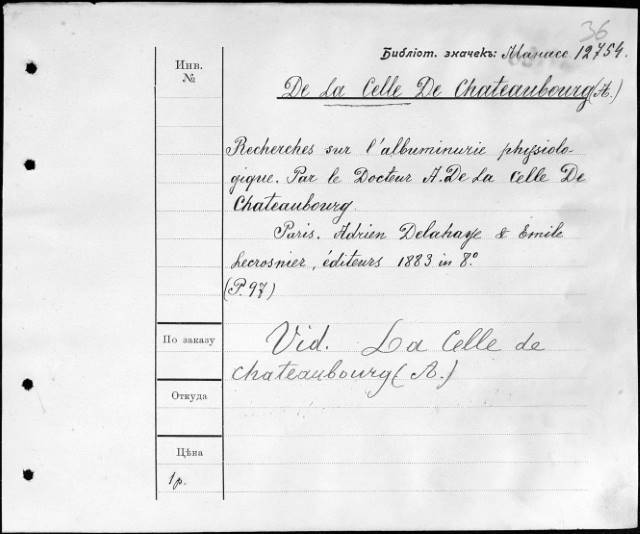 36
Библіот. значекъ: Манасс 12754.
Инв.
№
De La Celle De Chateaubourg (A.)
Recherches sur l'albuminurie physiolo-
gique. Par le Docteur A. De La Celle De
Chateaubourg.
Paris. Adrien Delahaye & Emile
Lecrosnier, éditeurs 1883 in 8º.
(P. 97)
По заказу
Vid. La Celle de
Chateaubourg (A.)
Откуда
Цѣна
1 р.